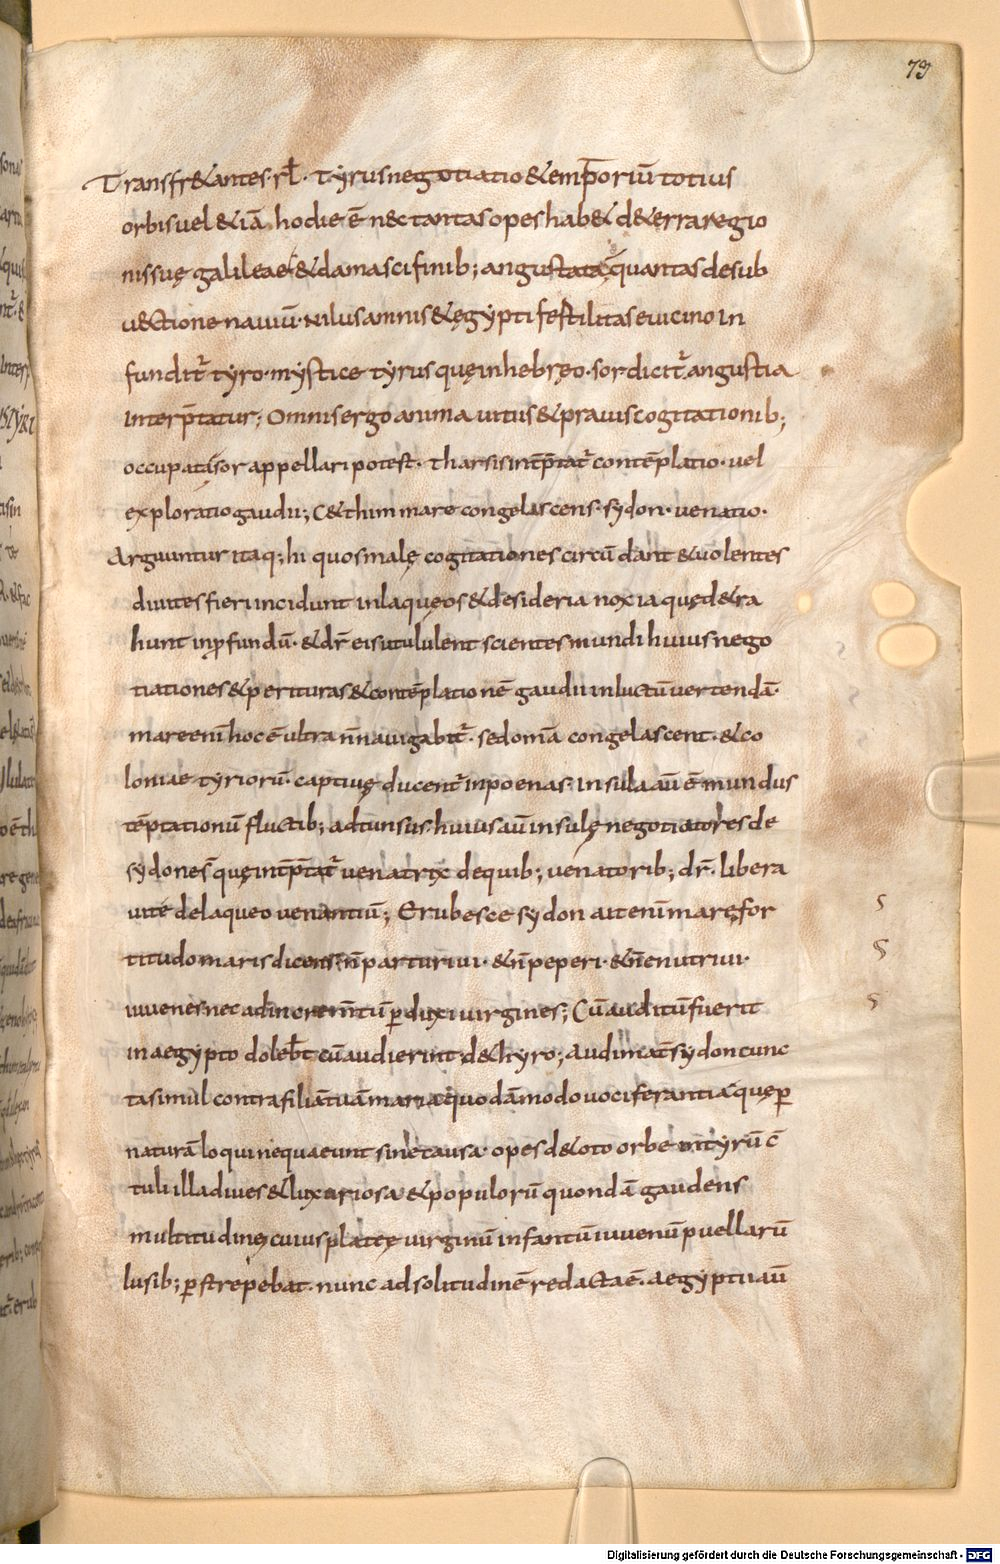 79
Transfr&antes· rł· Tyrus negotiatio & emporiū totius
orbis uel & iā hodie ē nec tantas opes hab& d& erra regio
nis suę galileae & damasci finib; angustata quantas de sub
uectione nauiū· Nilus amnis & ęgypti fertilitas e uicino in
fundit᷑ tyro· mystice tyrus quę in hebręo· sor dicit᷑ angustia
interp̄tatur; Omnis ergo anima uitiis & prauis cogitationib;
occupata sor appellari potest· tharsis int̄p̄tat᷑ contēplatio· uel
exploratio gaudii; C&thim mare congelascens· sydon· uenatio·
Arguuntur itaq; hi quos malę cogitationes circū dant & uolentes
diuites fieri incidunt in laquęos & desideria noxia quę d&ra
hunt in ꝓfundū· & dr̄ eis ut ululent scientes mundi huius nego
tiationes & perituras & contēplationē gaudii in luctū uertendā·
mare enī hoc ē ultra n̄ nauigabit᷑· sed omīa congelascent· & co
loniae tyriorū· captiuę ducent᷑ in poenas· Insula aū ē mundus
tēptationū fluctib; ad tunsus· huius aū insulę negotiatores de
sydone s̄ quę int̄p̄tat᷑ uenatrix de quib; uenatorib; dr̄· libera
uit é de laqueo uenantiū; Erubesce sydon ait enī maręfor
titudo maris dicens· n̄ parturiui· & n̄ peperi· & n̄ enutriui·
iuuenes nec ad incremtū ꝑduxi uirgines; Cū auditū fuerit
in aegypto dolebt cū audierint d& hyro; Audi
ta simul contra filiā tuā maria quodāmodo uociferantia quę ꝑ
naturā loqui nequaeunt sine causa· opes d&oto orbe in tyrū c̄
tuli illa diues & luxuriosa & populorū quondā gaudens
multitudinę cuius platęę uirginū infantū iuuenū puellarū
lusib; ꝑstrepebat· nunc ad solitudinē redacta ē· aegyptii aū
Digitalisierung gefördert durch die Deutsche Forschungsgemeinschaft - DFG